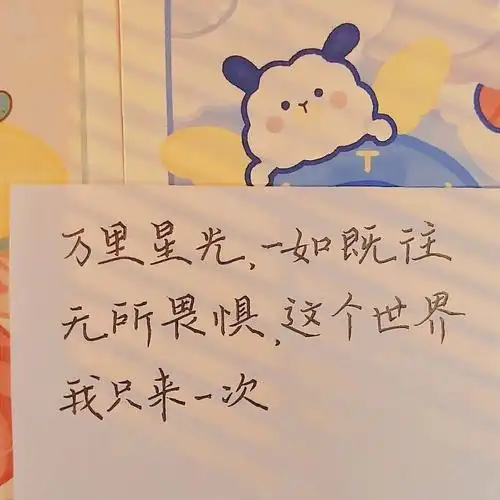 T
万里星光,一如既往
无所畏惧,这个世界
我只来一次